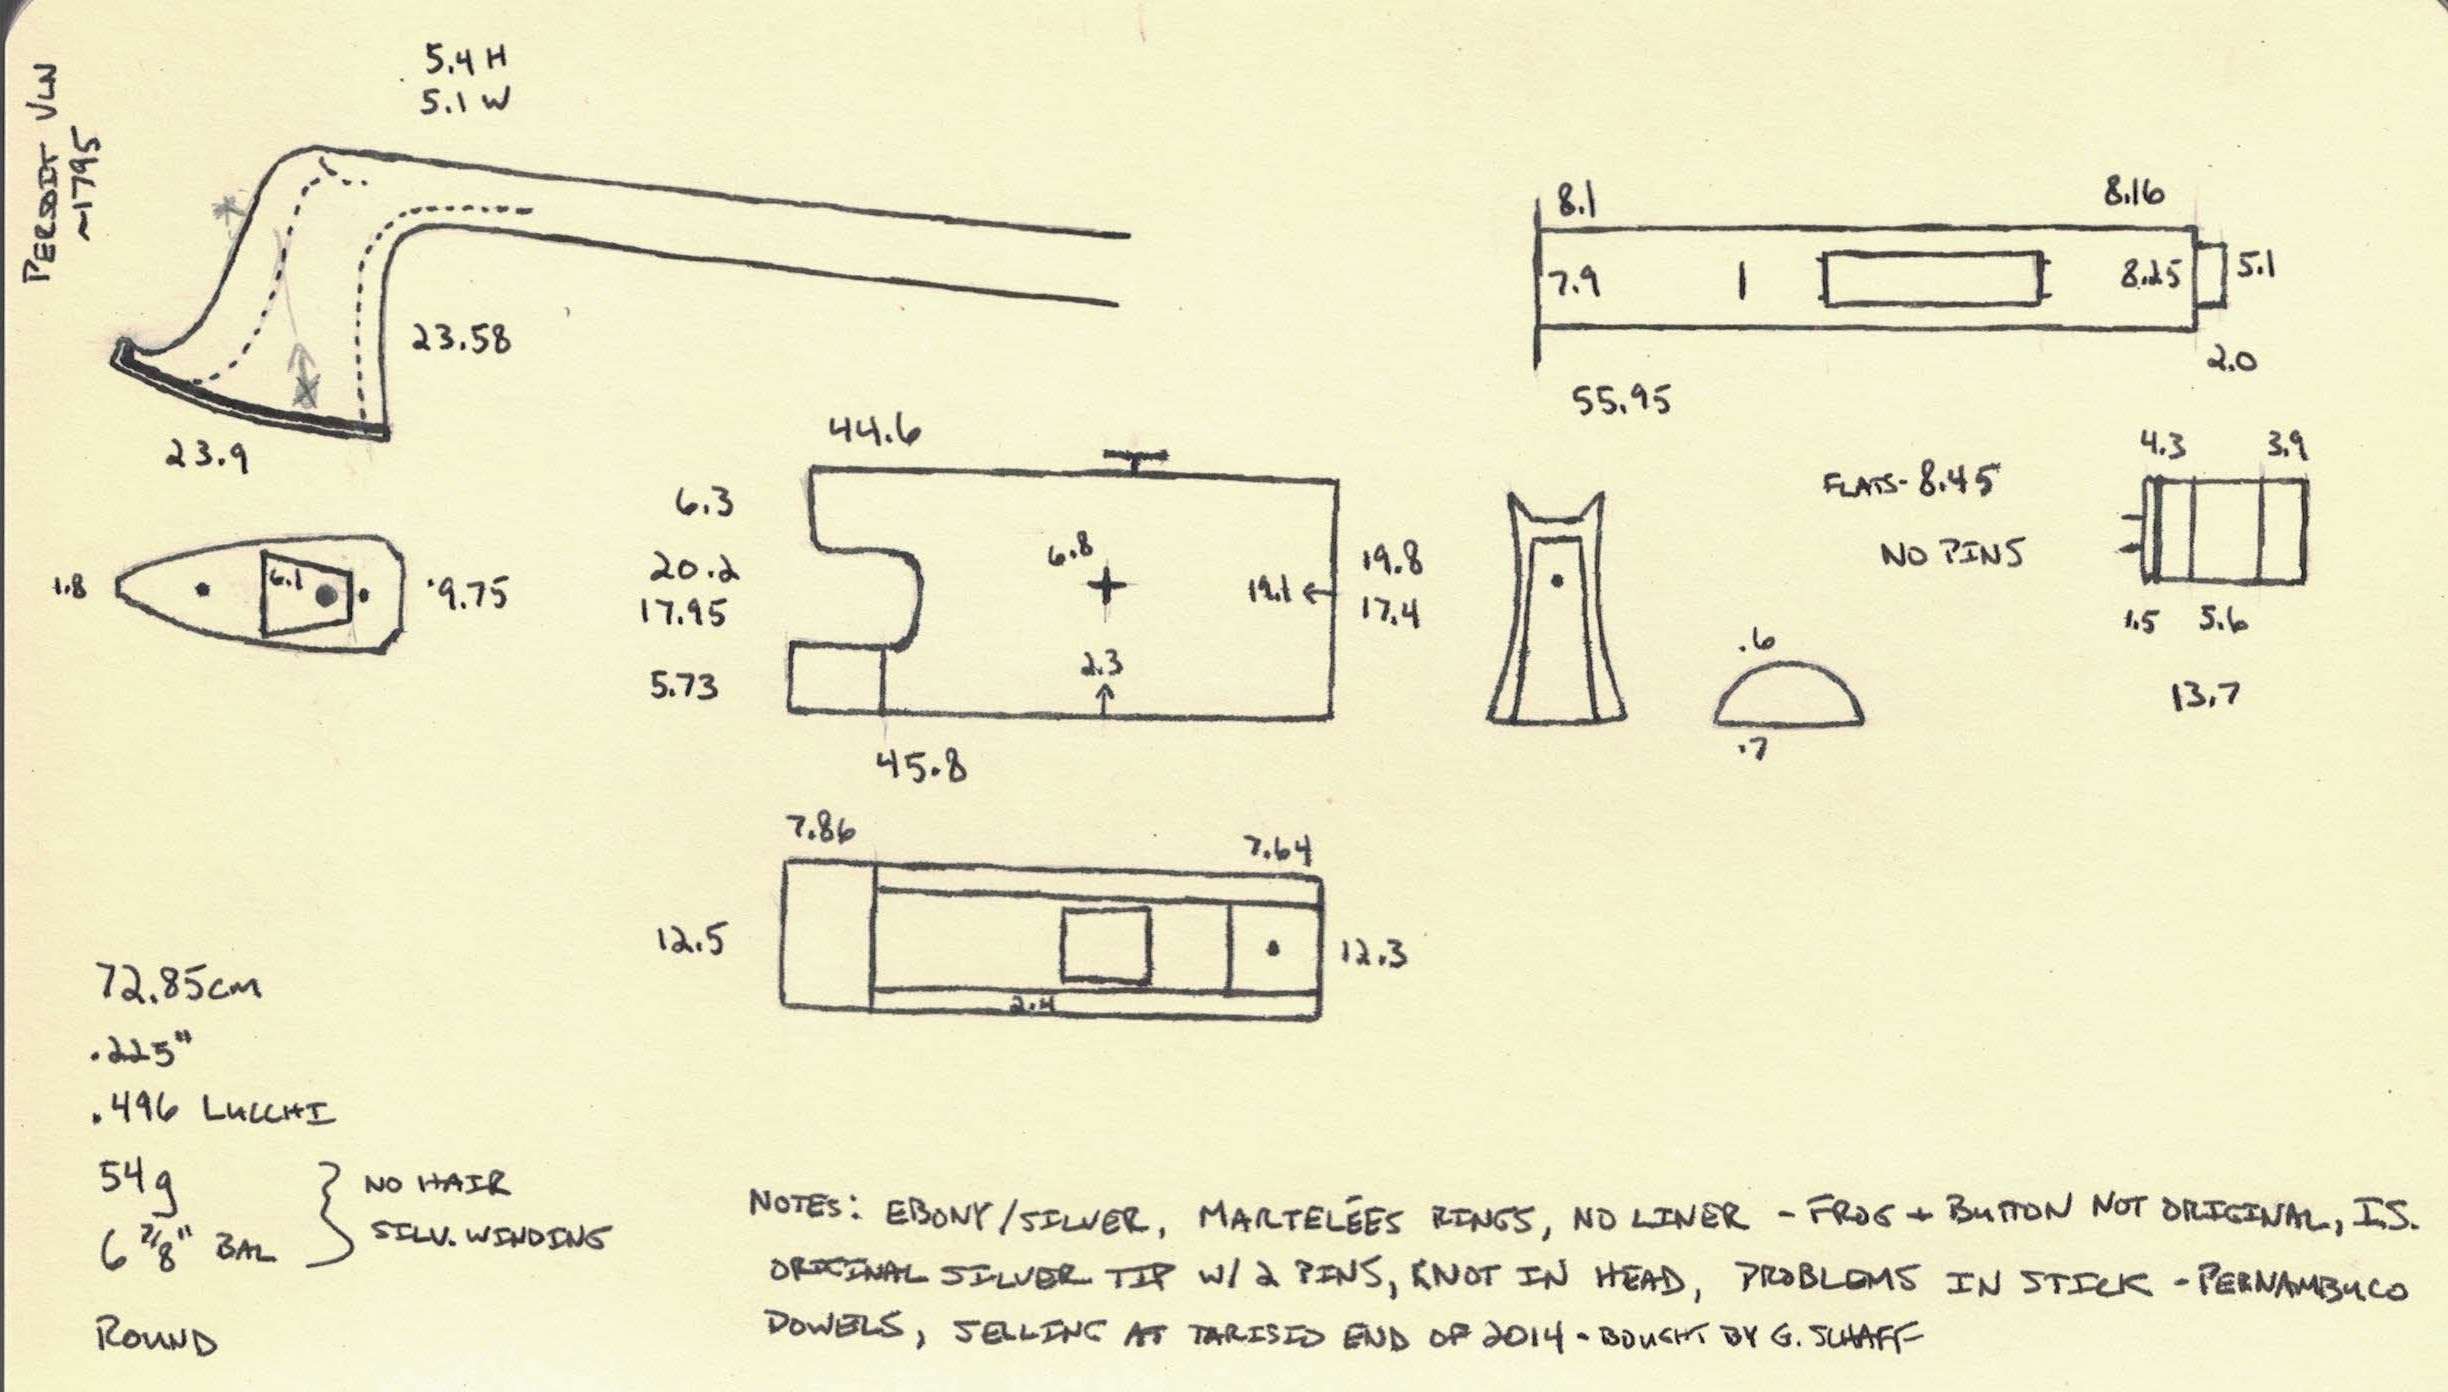 PERSOIT VLN
~1795
5.4 H
5.1 W
23.58
23.9
1.8
6.1
9.75
44.6
6.3
20.2
17.95
5.73
6.8
2.3
19.1
19.8
17.4
45.8
8.1
8.16
7.9
8.25
5.1
2.0
55.95
FLATS- 8.45
NO PINS
4.3
3.9
1.5
5.6
13.7
.6
.7
7.86
7.64
12.5
12.3
2.4
72.85cm
.225"
.496 LUCCHI
54g
6 7/8" BAL
NO HAIR
SILV. WINDING
ROUND
NOTES: EBONY/SILVER, MARTELÉES RINGS, NO LINER - FROG + BUTTON NOT ORIGINAL, I.S.
ORIGINAL SILVER TIP W/ 2 PINS, KNOT IN HEAD, PROBLEMS IN STICK - PERNAMBUCO
DOWELS, SELLING AT TARISIO END OF 2014 - BOUGHT BY G. SCHAFF